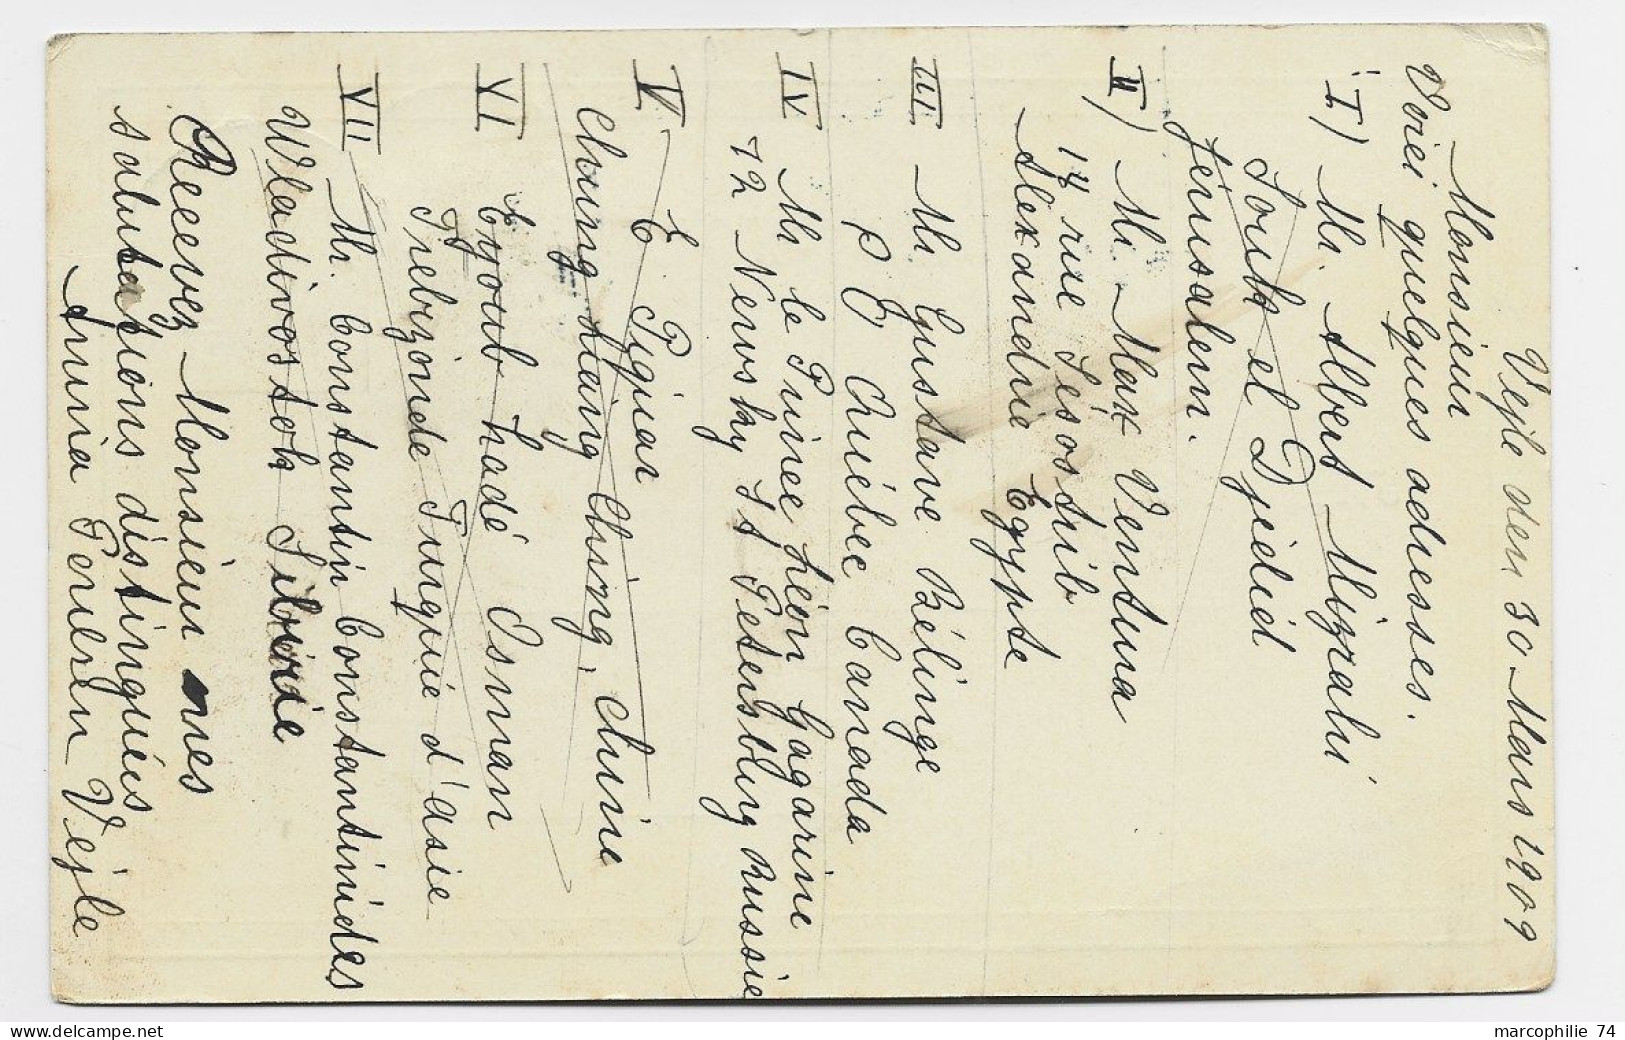 Vejle den 30 Mars 1909
Monsieur
Voici quelques adresses.
I) Mr. Albert Mizrahi
Souk el Djedid
Jérusalem.
II) Mr. Max Ventura
rue Sésostrib
Alexandrie Egypte
III Mr. Gustave Bélinge
P Q Québec Canada
IV Mr le Prince Léon Gagarine
72 Newsky St Petersburg Russie
V E Piguar
Chung King, chine
VI Eyoub hadé Osman
Trebizonde Turquie d'asie
VII Mr. Constantin Constantinides
Wladivostok Siberie
Recevez Monsieur mes
salutations distingués
Vejle
marcophilie 74